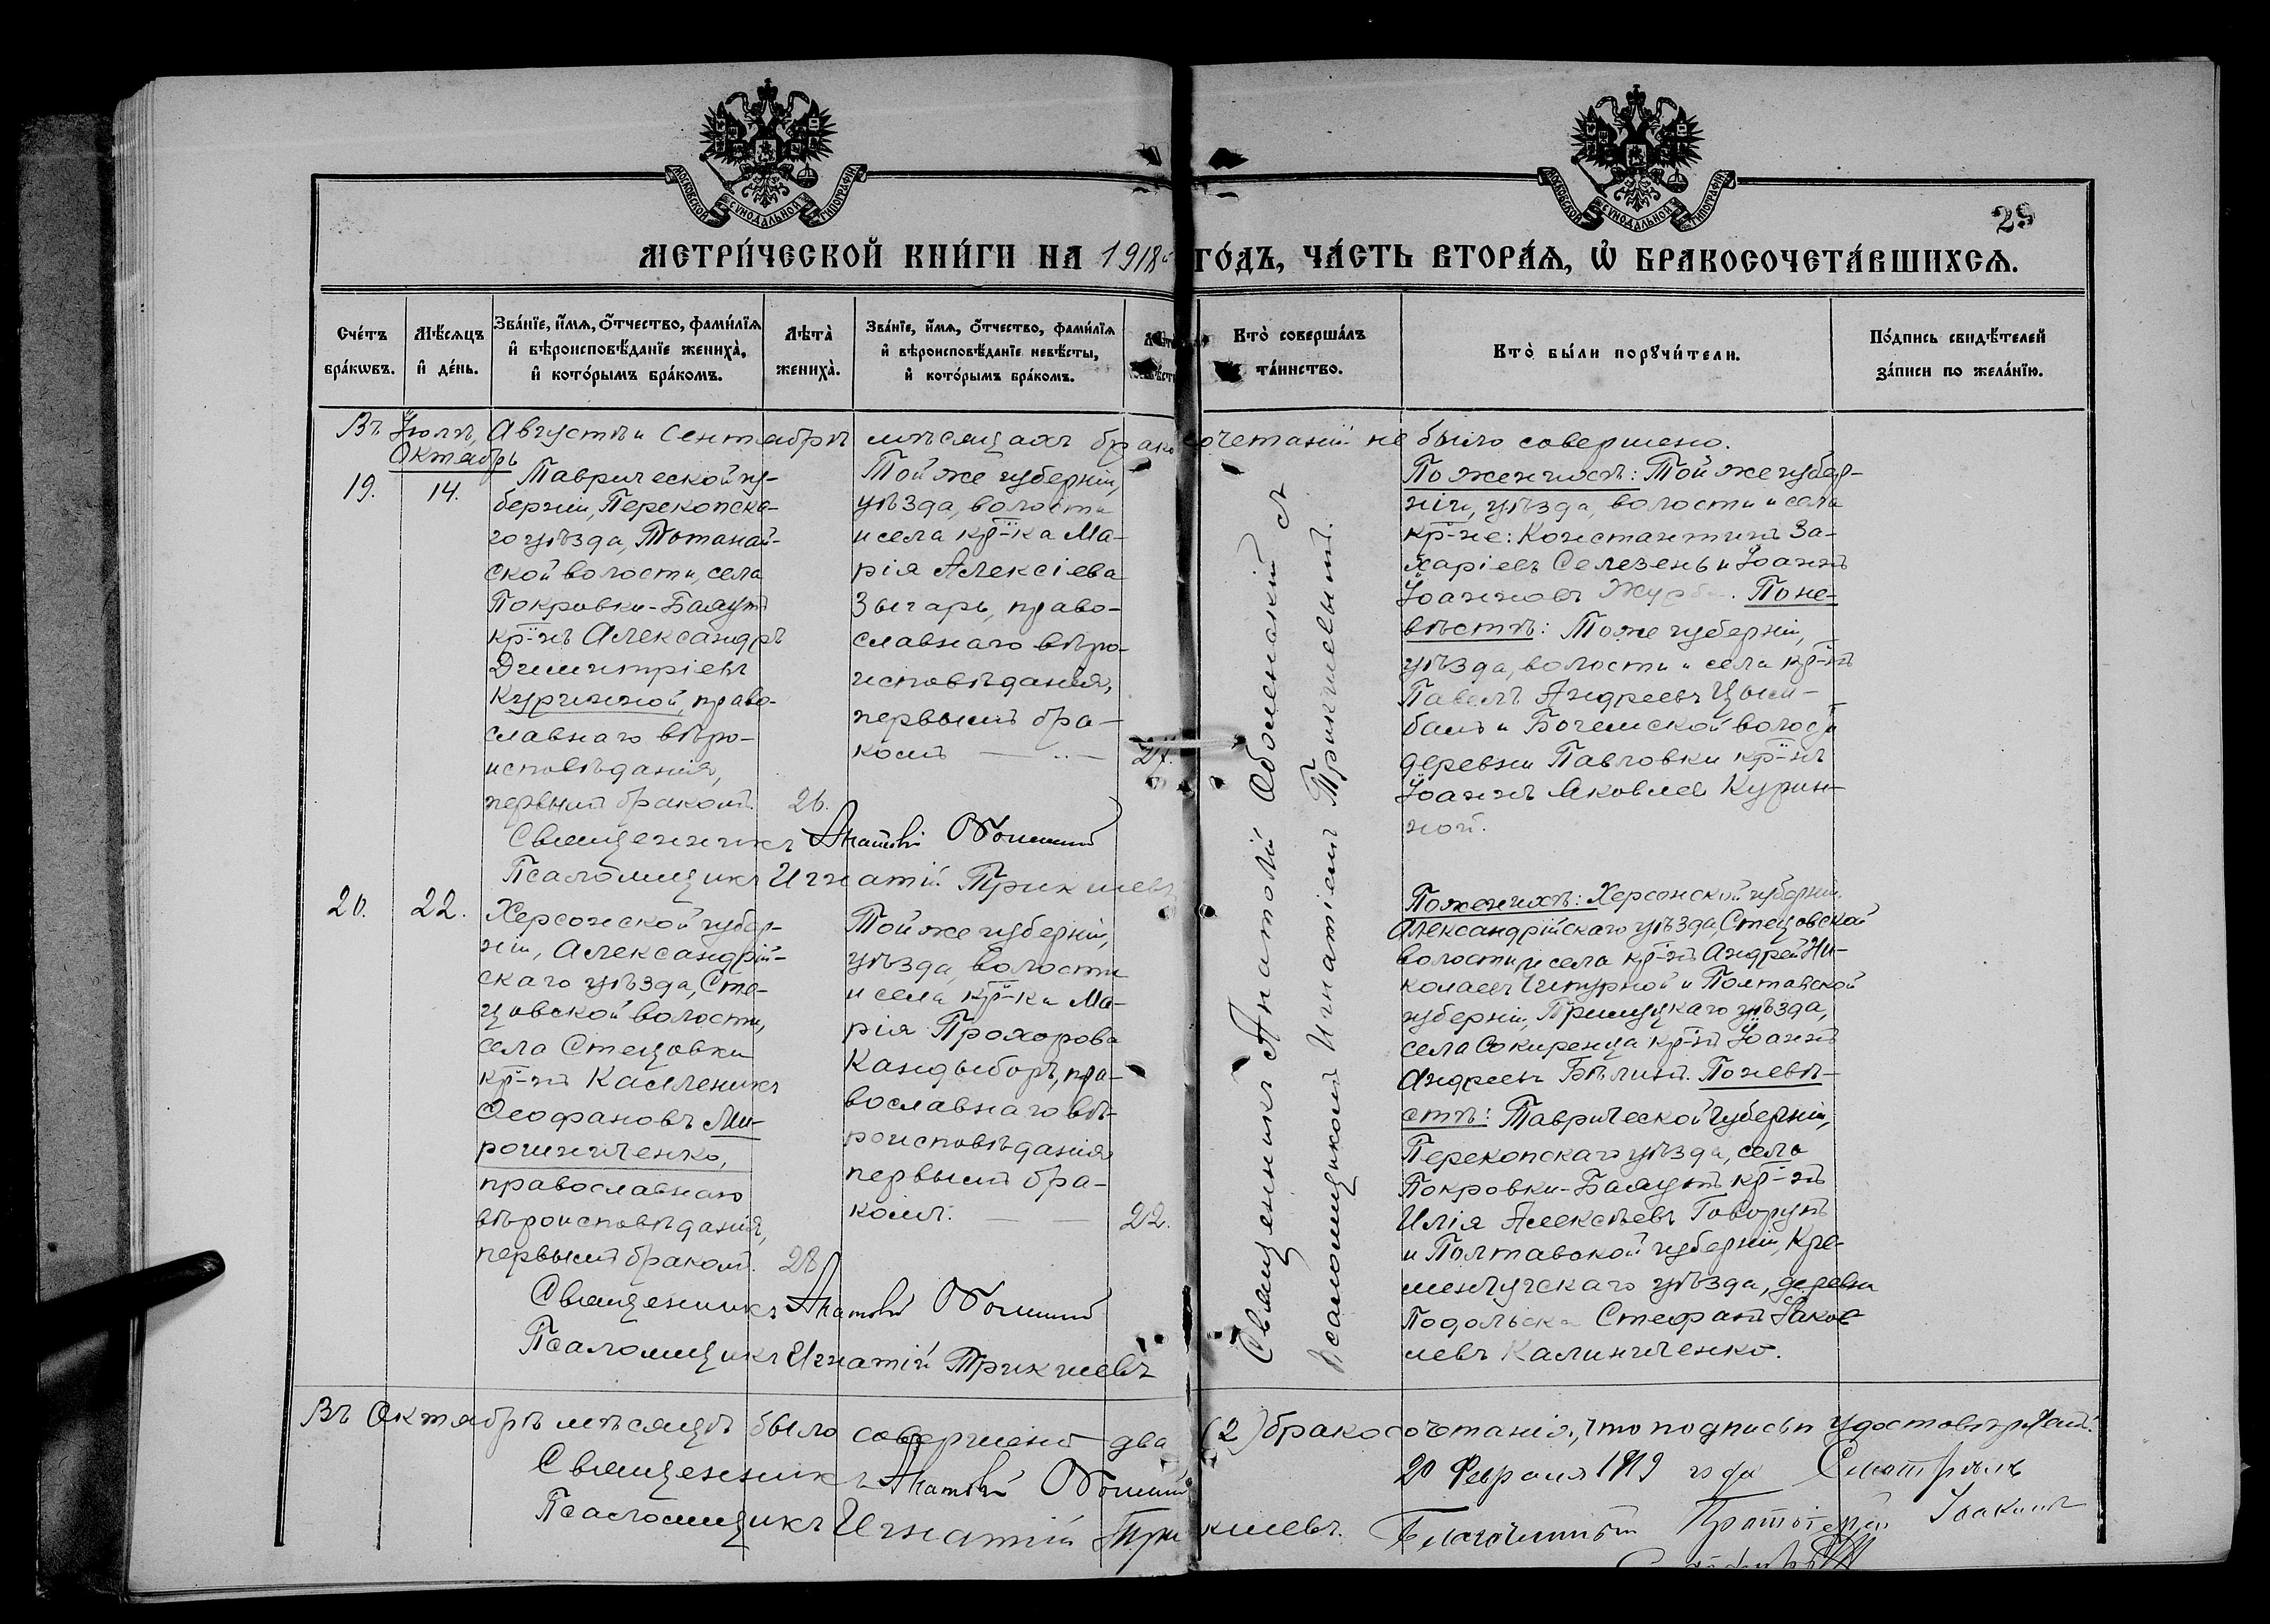 МОСКОВСКОЙ СѴНОДАЛЬНОЙ ТИПОГРАФІИ
МОСКОВСКОЙ СѴНОДАЛЬНОЙ ТИПОГРАФІИ
29
МЕТРИ́ЧЕСКОЙ КНИ́ГИ НА 1918й ГО́ДЪ, ЧА́СТЬ ВТОРА́Ѧ, Ѡ҆ БРАКОСОЧЕТА́ВШИХСѦ.
Сче́тъ
бра́кѡвъ.
Мѣ́сѧцъ
и҆ де́нь.
Зва́нїе, и҆́мѧ, ѻ҆́тчество, фами́лїѧ
и҆ вѣроисповѣ́данїе жениха̀,
и҆ кото́рымъ бра́комъ.
Лѣта̀
жениха̀.
Зва́нїе, и҆́мѧ, ѻ҆́тчество, фами́лїѧ
и҆ вѣроисповѣ́данїе невѣ́сты,
и҆ кото́рымъ бра́комъ.
Кто̀ соверша́лъ
та́инство.
Кто̀ бы́ли порꙋчи́тели.
По́дпись свидѣ́телей
за́писи по жела́нїю.
Въ Іюлѣ, Августѣ и Сентябрѣ мѣсяцахъ бракосочетаній не было совершено.
Октябрь
19.
14.
Таврической гу-
берніи, Перекопска-
го уѣзда, Тотанай-
ской волости, села
Покровки-Баяутъ
кр-нъ Александръ
Димитріевъ
Куринной, право-
славнаго вѣро-
исповѣданія,
первымъ бракомъ.
26.
Той же губерніи,
уѣзда, волости
и села кр-ка Ма-
рія Алексіева
Зыгарь, право-
славнаго вѣро-
исповѣданія,
первымъ бра-
комъ
27.
Священникъ Анатолій Оболенскій
Псаломщикъ Игнатій Трикшевъ
Священникъ Анатолій Оболенскій съ
Псаломщикомъ Игнатіемъ Трикшевымъ.
По женихѣ: Той же губер-
ніи, уѣзда, волости и села
кр-не: Константинъ За-
харіевъ Селезень и Іоаннъ
Іоанновъ Журба. По не-
вѣстѣ: Тоже губерніи,
уѣзда, волости и села кр-нъ
Павелъ Андреевъ Цым-
балъ и Богемской волости
деревни Павловки кр-нъ
Іоаннъ Яковлев Курин-
ной.
20.
22.
Херсонской губер-
ніи, Александрій-
скаго уѣзда, Сте-
цовской волости,
села Стецовки
кр-нъ Каллиникъ
Ѳеофановъ Ми-
рошниченко,
православнаго
вѣроисповѣданія,
первымъ бракомъ.
28
Той же губерніи,
уѣзда, волости
и села кр-ка Ма-
рія Прохорова
Кандыборъ, пра-
вославнаго вѣ-
роисповѣданія
первымъ бра-
комъ.
22.
Священникъ Анатолій Оболенскій
Псаломщикъ Игнатій Трикшевъ
По женихѣ: Херсонской губерніи
Александрійскаго уѣзда, Стецовской
волости, и села кр-нъ Андрей Ни-
колаевъ и Полтавской
губерніи, Прилуцкаго уѣзда,
села Сокиренца кр-нъ Іоаннъ
Андреевъ Бѣлинъ. По невѣ-
стѣ: Таврической губерніи,
Перекопскаго уѣзда, села
Покровки-Баяутъ кр-нъ
Илія Алексѣевъ Говорунъ
и Полтавской губерніи, Кре-
менчугскаго уѣзда, деревни
Подольска Стефанъ Яков-
левъ Калиниченко.
Въ Октябрѣ мѣсяцѣ было совершено два (2) бракосочетанія, что подписью удостовѣряемъ.
Священникъ Анатолій Оболенскій
Псаломщикъ Игнатій Трикшевъ.
20 Февраля 1919 года Смотрѣлъ
Благочинный Протоіерей Іоакимъ